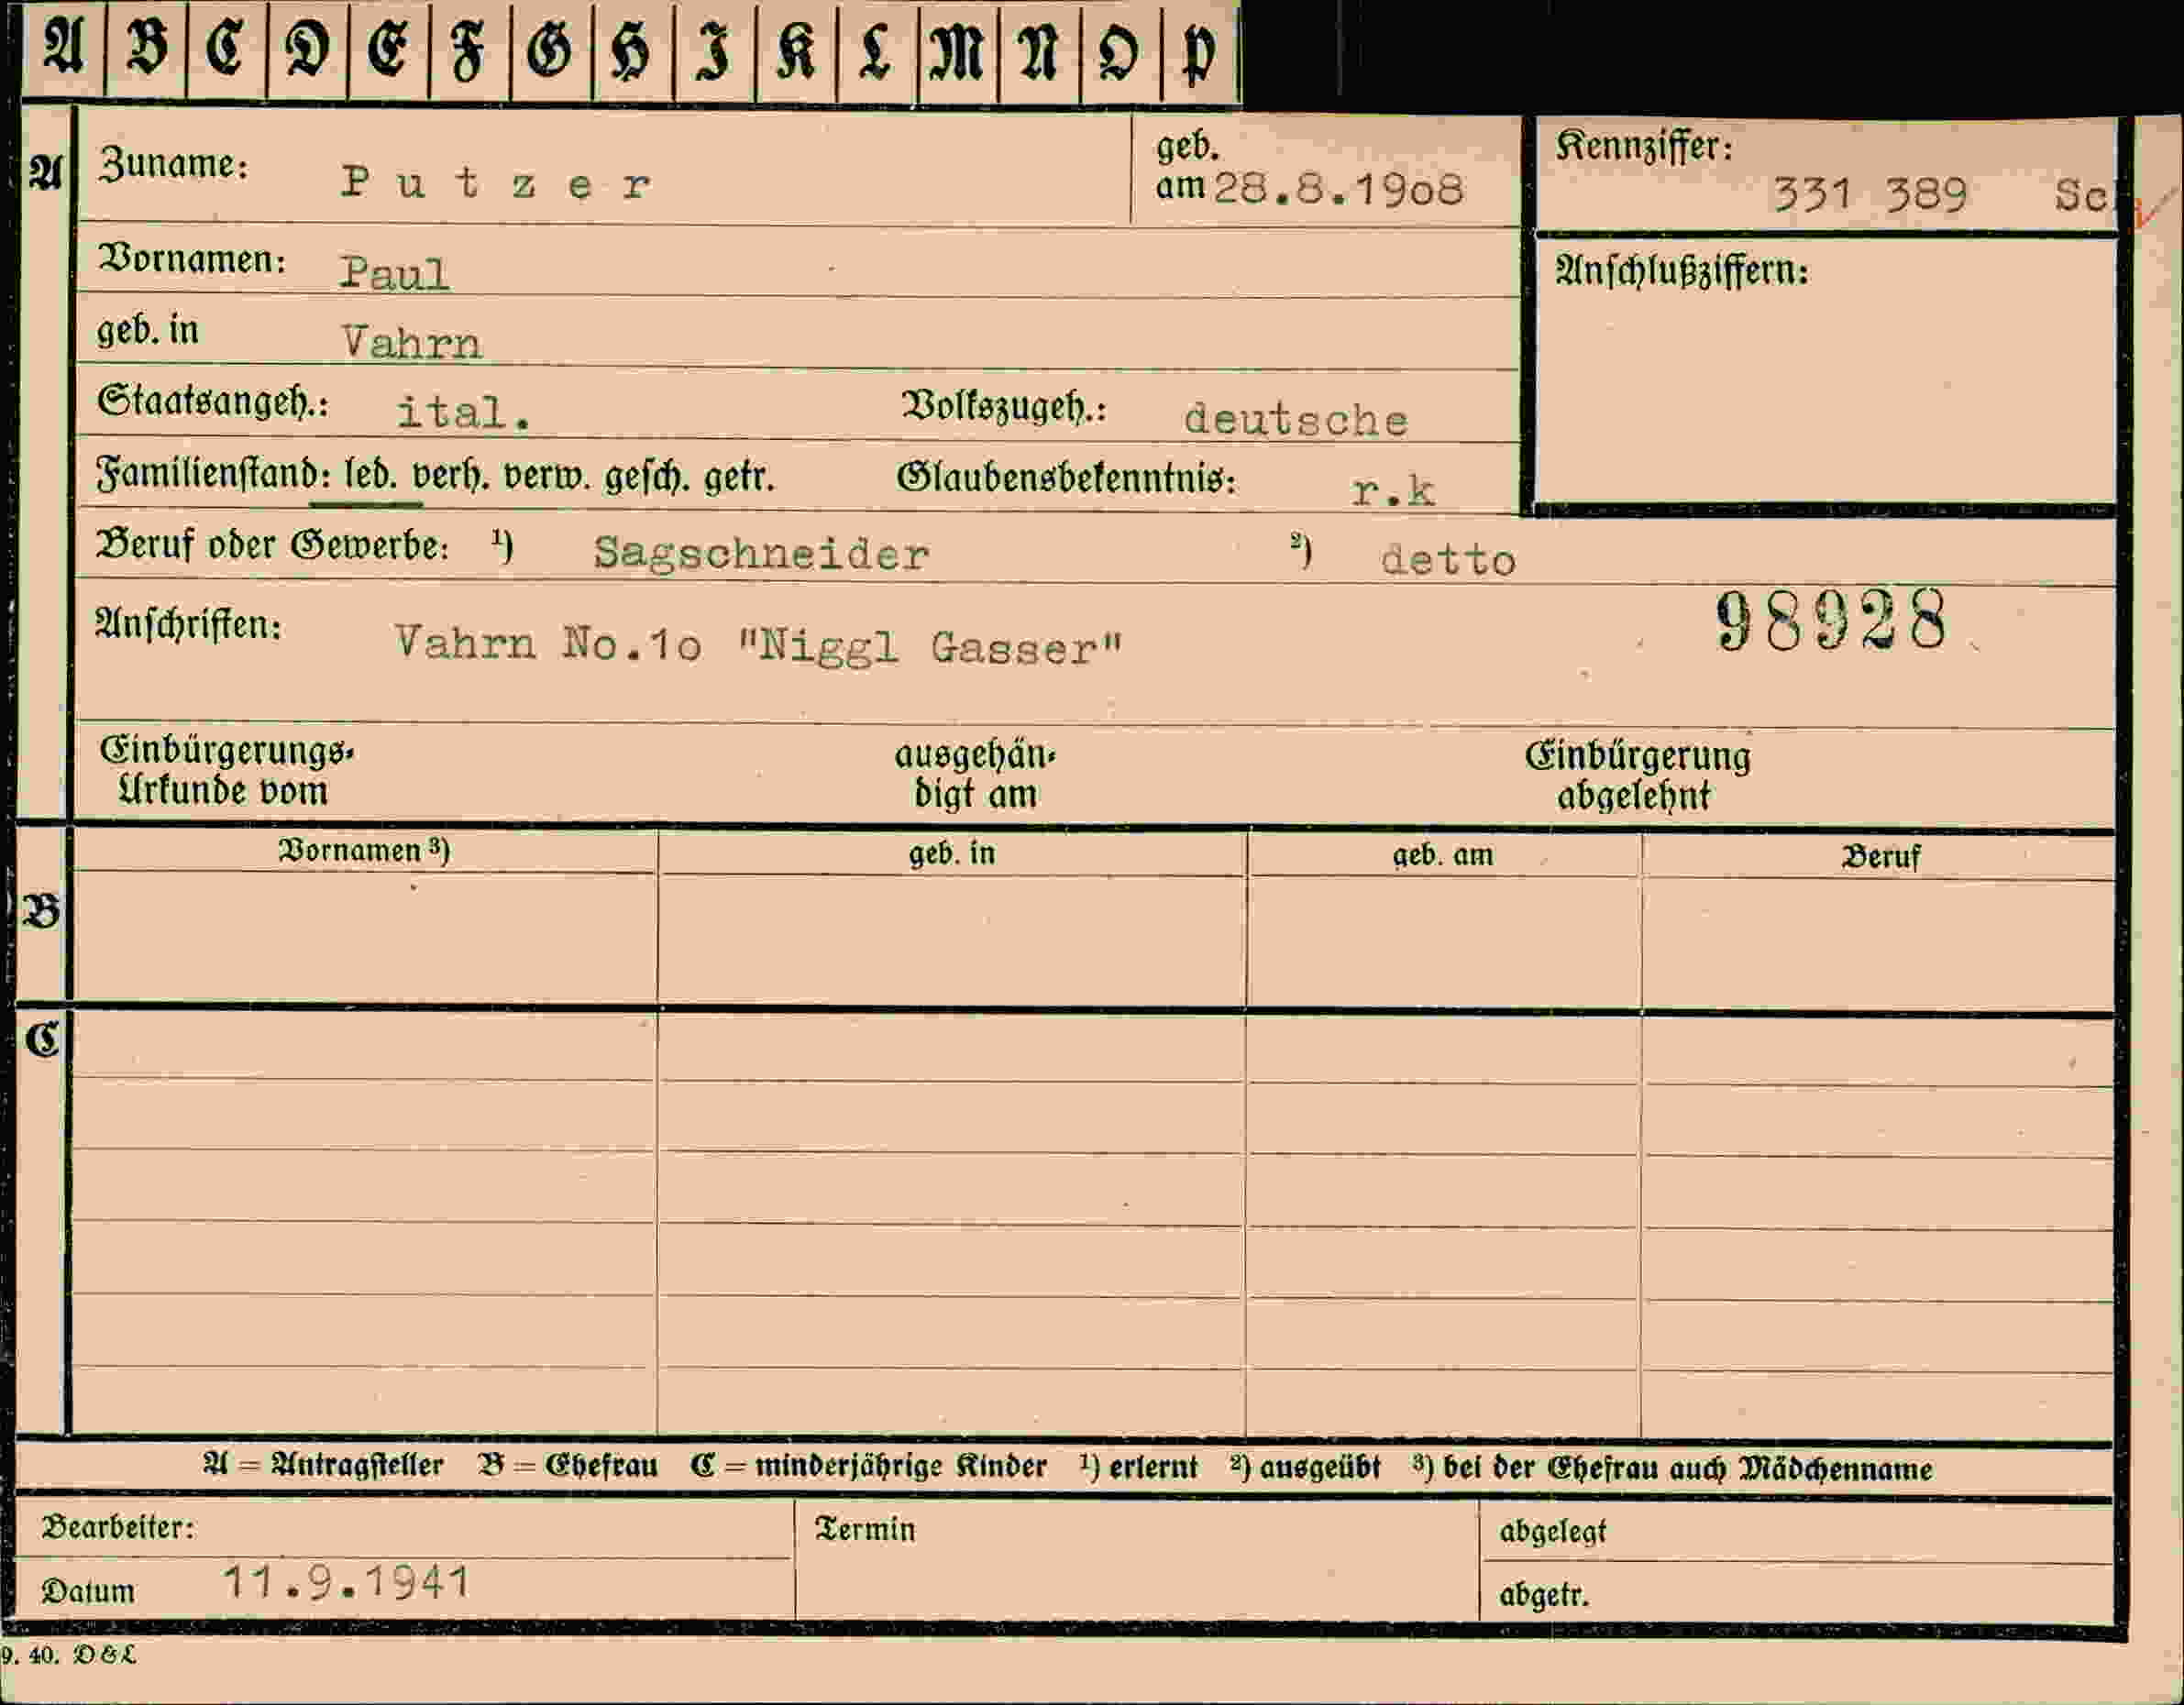 A B C D E F G H I K L M N O P
A Zuname: Putzer geb. am 28.8.1908 Kennziffer: 331 389
Vornamen: Paul Anschlußziffern:
geb. in Vahrn
Staatsangeh.: ital. Volkszugeh.: deutsche
Familienstand: led. verh. verw. gesch. getr. Glaubensbekenntnis: r.k
Beruf oder Gewerbe: ¹) Sagschneider ²) detto
98928
Anschriften: Vahrn No.10 "Niggl Gasser"
Einbürgerungs- ausgehän- Einbürgerung
Urkunde vom digt am abgelehnt
Vornamen ³) geb. in geb. am Beruf
B
C
A = Antragsteller B = Ehefrau C = minderjährige Kinder ¹) erlernt ²) ausgeübt ³) bei der Ehefrau auch Mädchenname
Bearbeiter: Termin abgelegt
Datum 11.9.1941 abgetr.
9. 40. D & L